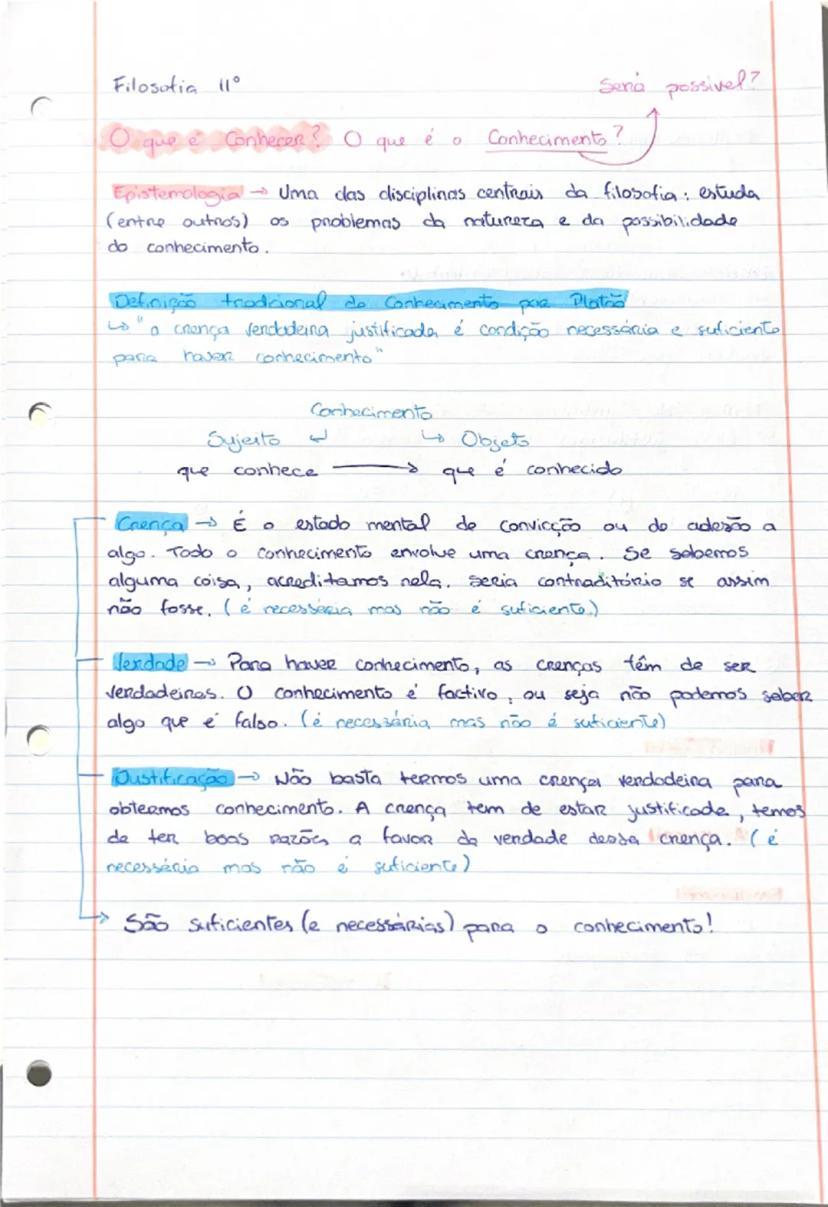 Filosofia 11º
Será possível?
O que é Conhecer? O que é o Conhecimento?
Epistemologia → Uma das disciplinas centrais da filosofia: estuda
(entre outros) os problemas da natureza e da possibilidade
do conhecimento.
Definição tradicional de Conhecimento por Platão
↳ "a crença verdadeira justificada é condição necessária e suficiente
para haver conhecimento"
Conhecimento
Sujeito ↲ ↳ Objeto
que conhece → que é conhecido
Crença → É o estado mental de convicção ou de adesão a
algo. Todo o conhecimento envolve uma crença. Se sabemos
alguma coisa, acreditamos nela. Seria contraditório se assim
não fosse. (é necessária mas não é suficiente)
Verdade → Para haver conhecimento, as crenças têm de ser
verdadeiras. O conhecimento é factivo, ou seja não podemos saber
algo que é falso. (é necessária mas não é suficiente)
Justificação → Não basta termos uma crença verdadeira para
obtermos conhecimento. A crença tem de estar justificada, temos
de ter boas razões a favor da verdade dessa crença. (é
necessária mas não é suficiente)
→ São suficientes (e necessárias) para o conhecimento!